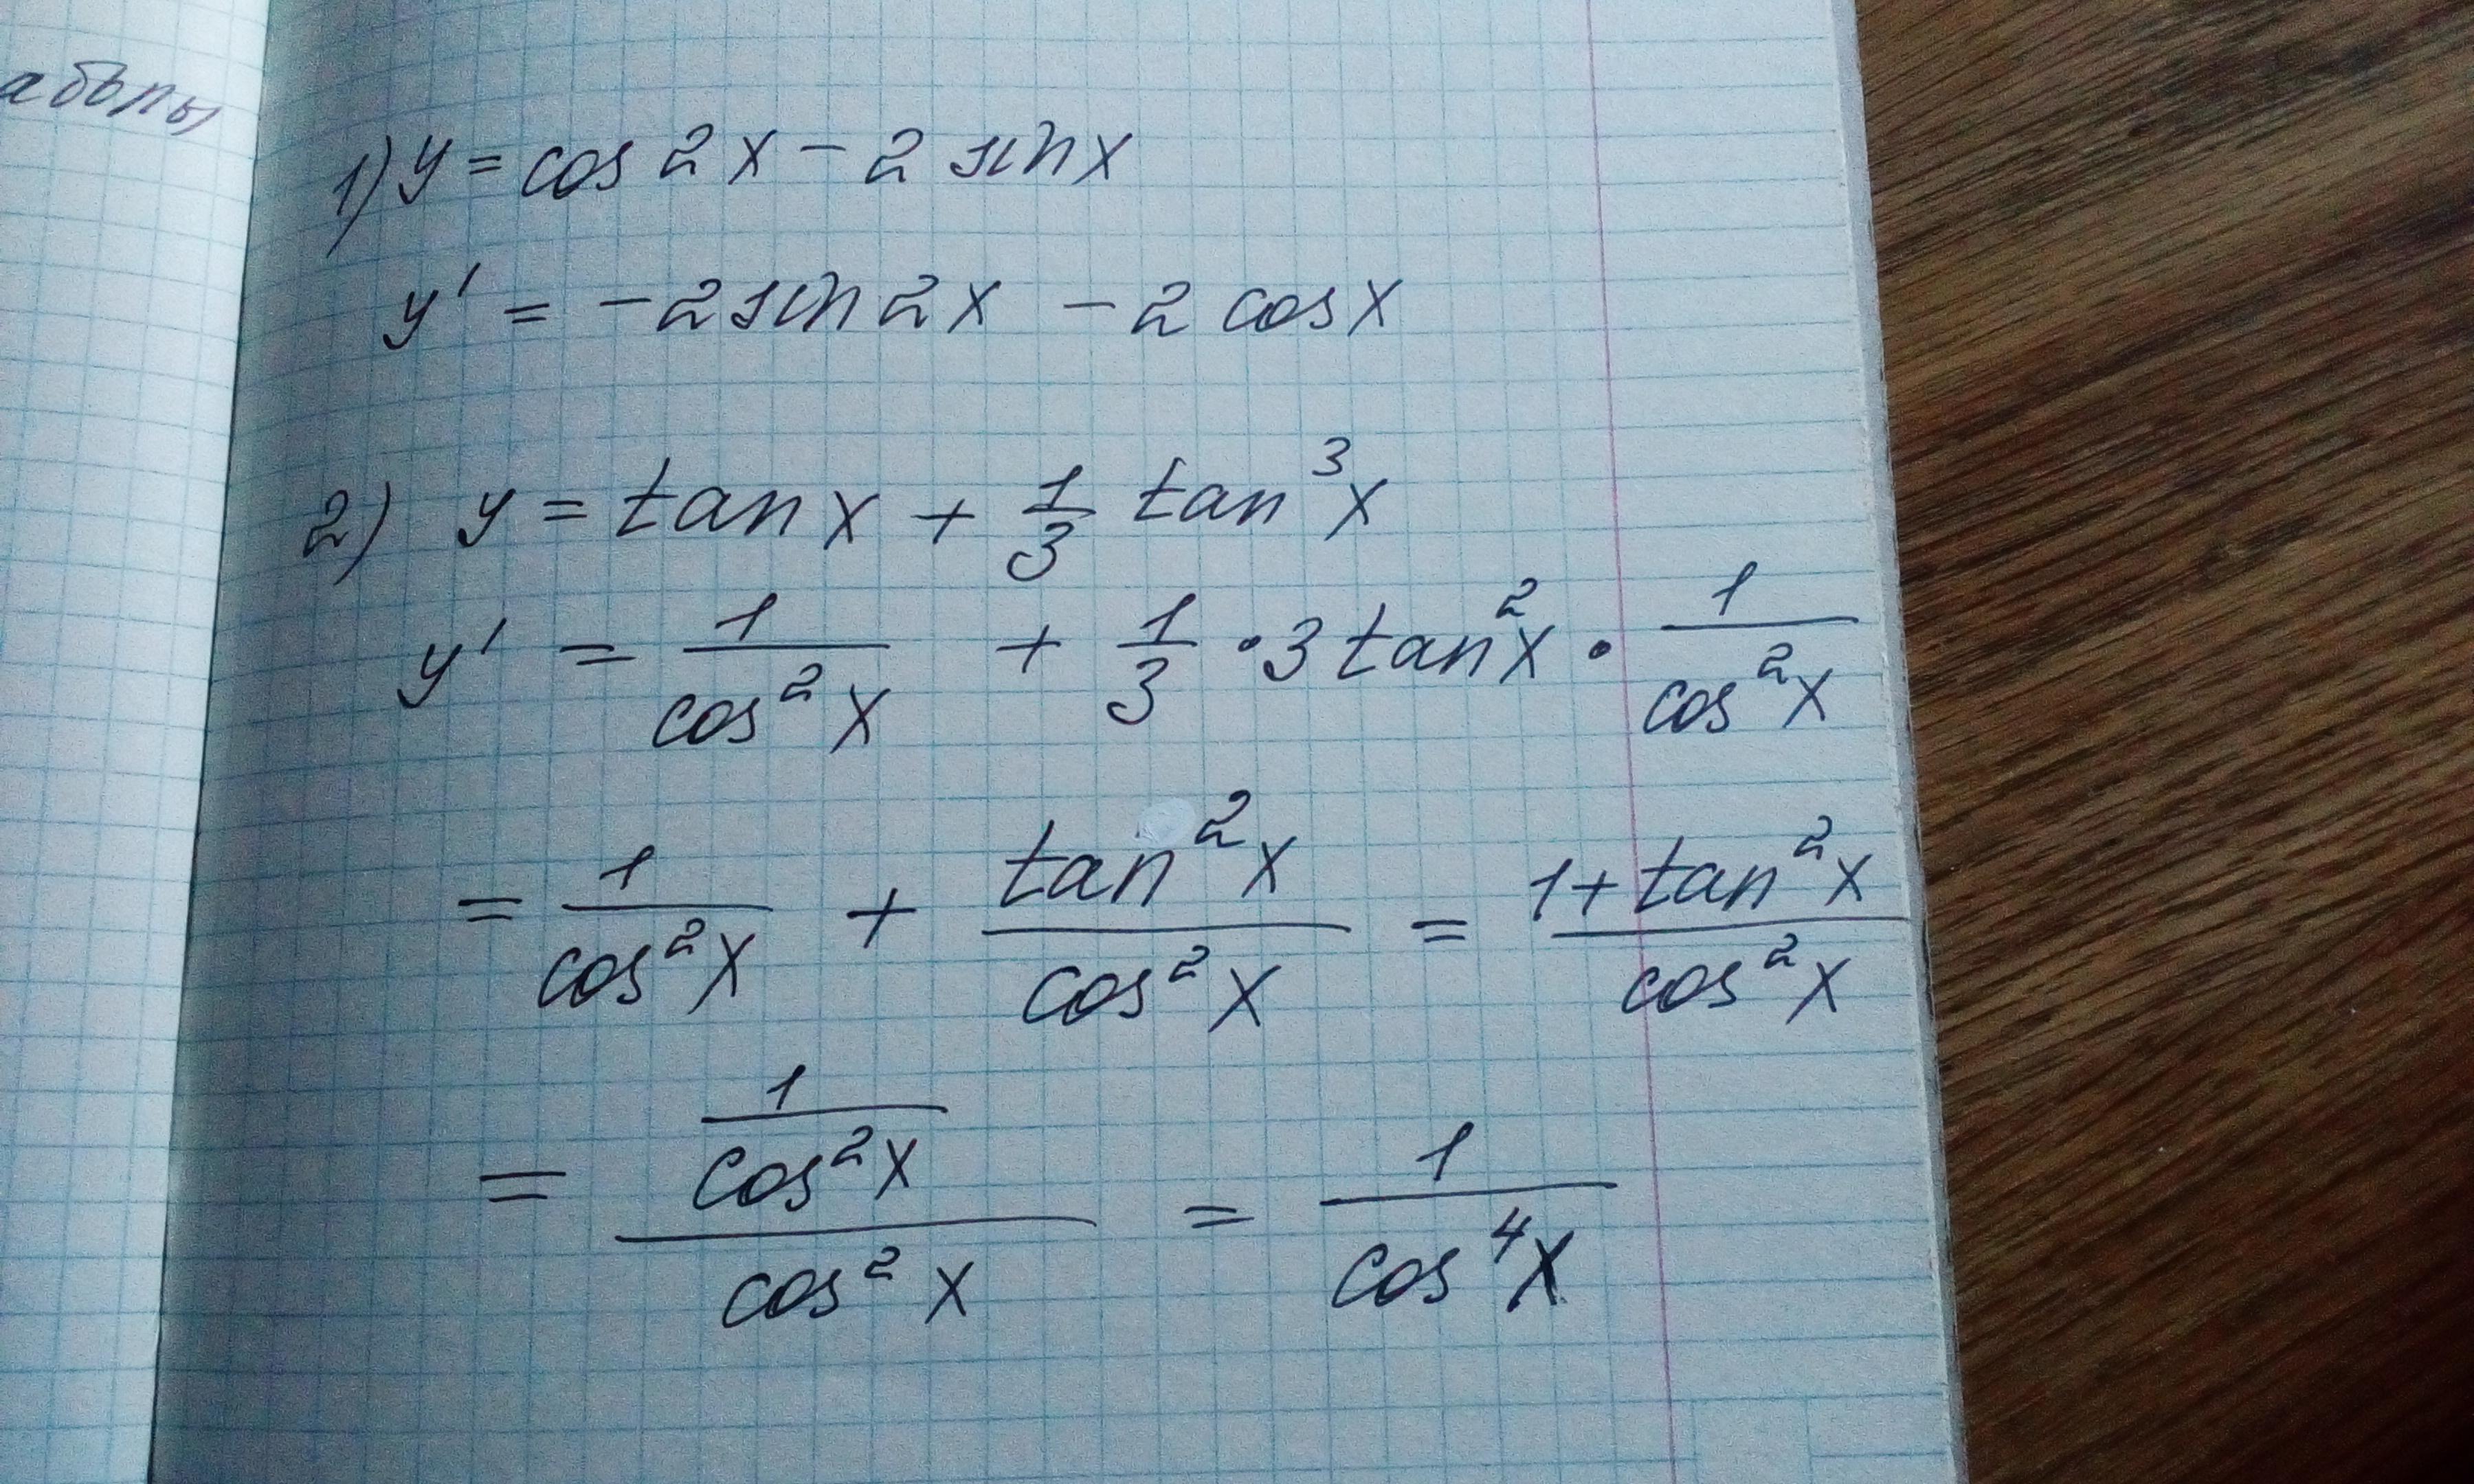 1) y = cos 2x − 2 sin x
y' = −2 sin 2x − 2 cos x
2) y = tan x + 1/3 tan³x
y' = 1/cos²x + 1/3 · 3 tan²x · 1/cos²x
= 1/cos²x + tan²x/cos²x = (1 + tan²x)/cos²x
= (1/cos²x)/cos²x = 1/cos⁴x